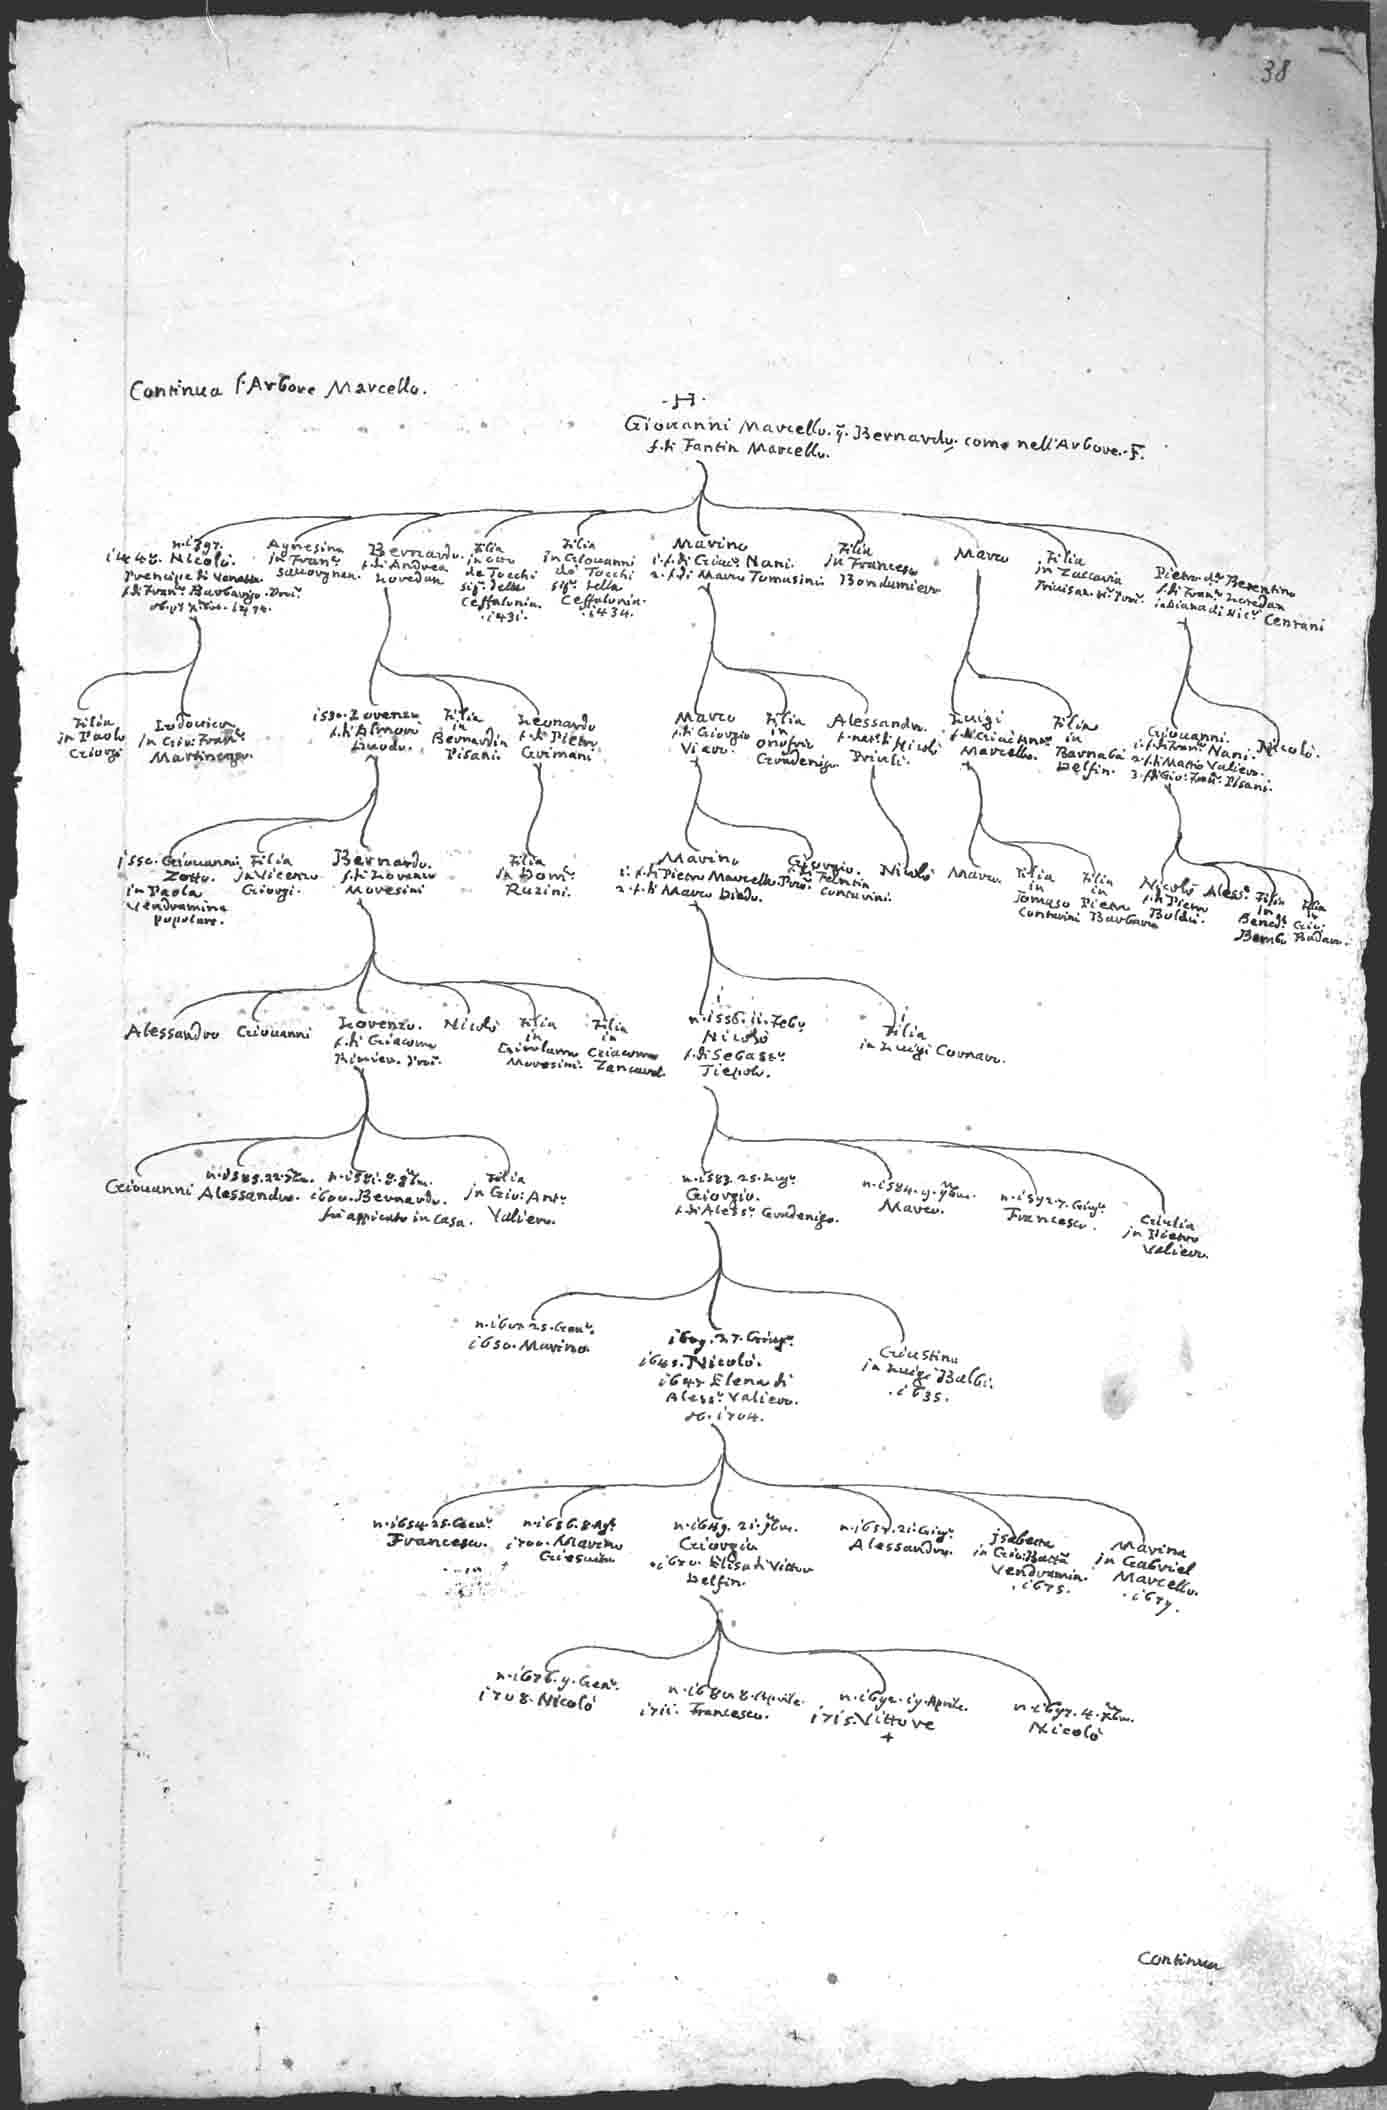 38
Continua l'Arbore Marcello.
-H-
Giouanni Marcello. q. Bernardo. come nell'Arbore. F.
f. di Fantin Marcello.
n. 1397.
Nicolò.
Prencipe di Venetia
f. di Fran.º Barbarigo. Proc.r
Agnesina
in Fran.º
Sauorgnan.
Bernardo.
f. di Andrea
Loredan
Filia
in
de Tocchi
sig.r della
Ceffalonia.
.1431.
Filia
in Giouanni
de Tocchi
sig.r della
Ceffalonia.
.1434.
Marino
1. f. di Giac.º Nani.
2. f. di Marco Tomasini
Filia
in Francesco
Bondumiero
Marco
Filia
in Zaccaria
Priuisan. K.r Proc.r
Pietro d.º Berentino
f. di Fran.º Loredan
in Diana di Nic.º Centani
Filia
in Paolo
Giorgi
Lodouica
in Gio: Fran.º
Martinengo.
1530. Lorenzo
f. di Almorò
Duodo.
Filia
in
Bernardin
Pisani.
Leonardo
f. di Pietro
Grimani
Marco
f. di Giorgio
Viaro.
Filia
in
Onofrio
Gradenigo
Alessandro.
f. nat. di Nicolò
Priuli.
Luigi
f. di
Marcello.
Filia
in
Barnabà
Delfin.
Giouanni.
1. f. di Fran.º Nani.
2. f. di Mattio Valiero.
3. f. di Gio: Fran.º Pisani.
Nicolò.
1550. Giouanni
Zotto.
in Paola
Vendramina
popolare.
Filia
in Vicenzo
Giorgi.
Bernardo.
f. di Lorenzo
Moresini
Filia
in Dom.º
Ruzini.
Marino
1. f. di Pietro Marcello. Proc.r
2. f. di Marco Diedo.
Giorgio.
f. di Ferantin
Contarini.
Nicolò
Marco.
Filia
in
Tomaso
Contarini
Filia
in
Pietro
Barbaro
Nicolò
f. di Pietro
Boldù.
Aless.º
Filia
in
Bened.º
Bembo
Filia
in
Gio:
Badoer.
Alessandro
Giouanni
Lorenzo.
f. di Giacomo
Renier. Proc.r
Nicolò
Filia
in
Girolamo
Moresini.
Filia
in
Giacomo
Zancarol.
n. 1556. 11. Feb.º
Nicolò
f. di Sebast.º
Tiepolo.
Filia
in Luigi Cornaro.
Giouanni
n. 1585. 22.
Alessandro.
n. 1581. 8. 8bre.
1600. Bernardo.
fù appicato in Casa.
Filia
in Gio: Ant.º
Valiero.
n. 1583. 25. Lug.º
Giorgio.
f. di Aless.º Gradenigo.
n. 1584. 9. 9bre.
Marco.
n. 1592. 7. Giug.º
Francesco.
Giulia
in Pietro
Valiero.
25. Gen.º
1650. Marino.
1609. 27. Giug.º
1645. Nicolò.
1647 Elena di
Aless.º Valiero.
ob. 1704.
Giustina
in Luigi Balbi.
.1635.
n. 1654. 25. Gen.º
Francesco.
n. 1656. 8. Ag.º
1700. Marino
Giesuita
n. 1649. 21.
Giorgio
1670. Elisa di Vittor
Delfin.
n. 1657. 21. Giug.º
Alessandro.
Isabetta
in Gio: Batta
Vendramin.
.1675.
Marina
in Gabriel
Marcello.
.1679.
n. 1676. 9. Gen.º
1708. Nicolò
n. 1680 8. Aprile.
1711. Francesco.
n. 1692. 19. Aprile.
1715. Vittore
+
n. 1697. 4.
Nicolò
Continua